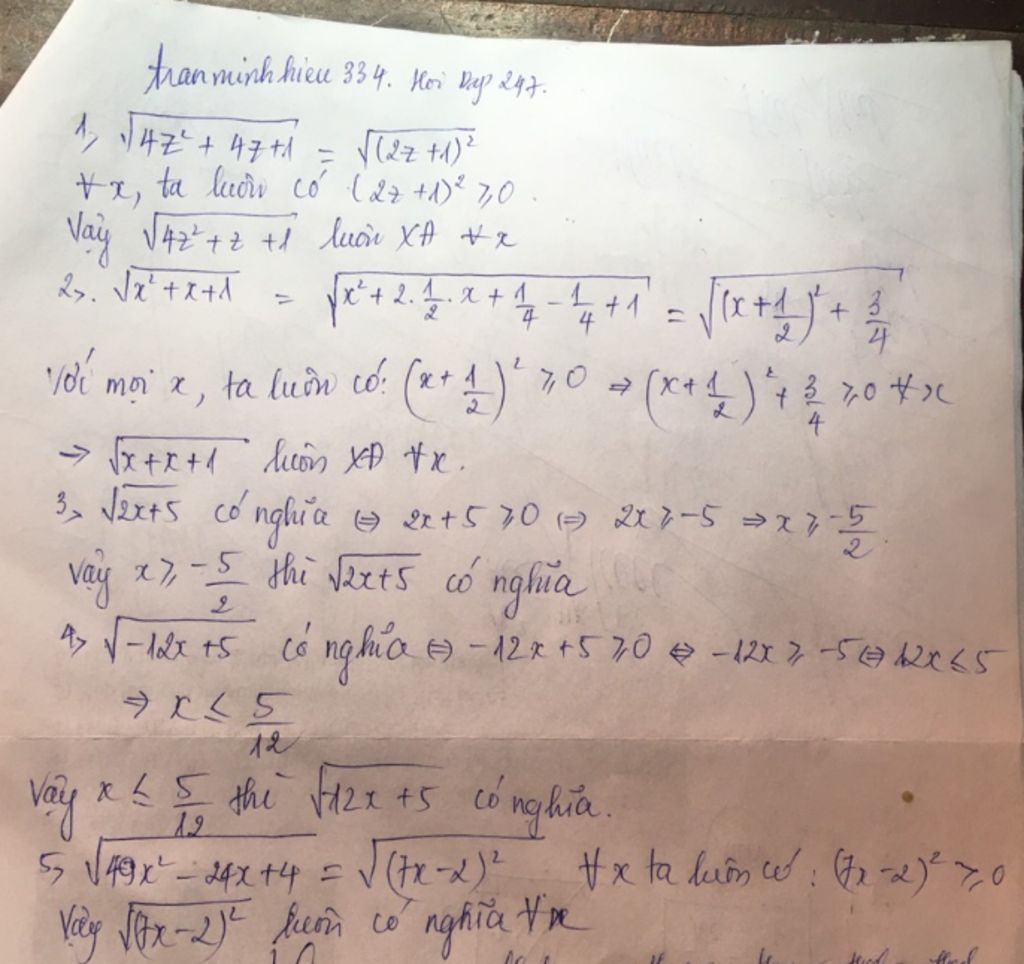 tranminhhieu 334. Hoi Dap 247.
1, √(4z² + 4z+1) = √((2z+1)²)
∀x, ta luôn có (2z+1)² ≥0.
Vậy √(4z²+z+1) luôn XĐ ∀x
2,. √(x²+x+1) = √(x²+2.1/2.x+1/4-1/4+1) = √((x+1/2)²+3/4)
Với mọi x, ta luôn có: (x+1/2)² ≥0 ⇒ (x+1/2)²+3/4 ≥0 ∀x
→ √(x+x+1) luôn XĐ ∀x.
3, √(2x+5) có nghĩa ⇔ 2x+5 ≥0 ⇔ 2x ≥ -5 ⇒ x ≥ -5/2.
Vậy x ≥ -5/2 thì √(2x+5) có nghĩa
4, √(-12x+5) có nghĩa ⇔ -12x+5 ≥0 ⇔ -12x ≥ -5 ⇔ 12x ≤ 5
⇒ x ≤ 5/12
Vậy x ≤ 5/12 thì √(-12x+5) có nghĩa.
5, √(49x² - 24x+4) = √((7x-2)²) ∀x ta luôn có: (7x-2)² ≥0
Vậy √((7x-2)²) luôn có nghĩa ∀x